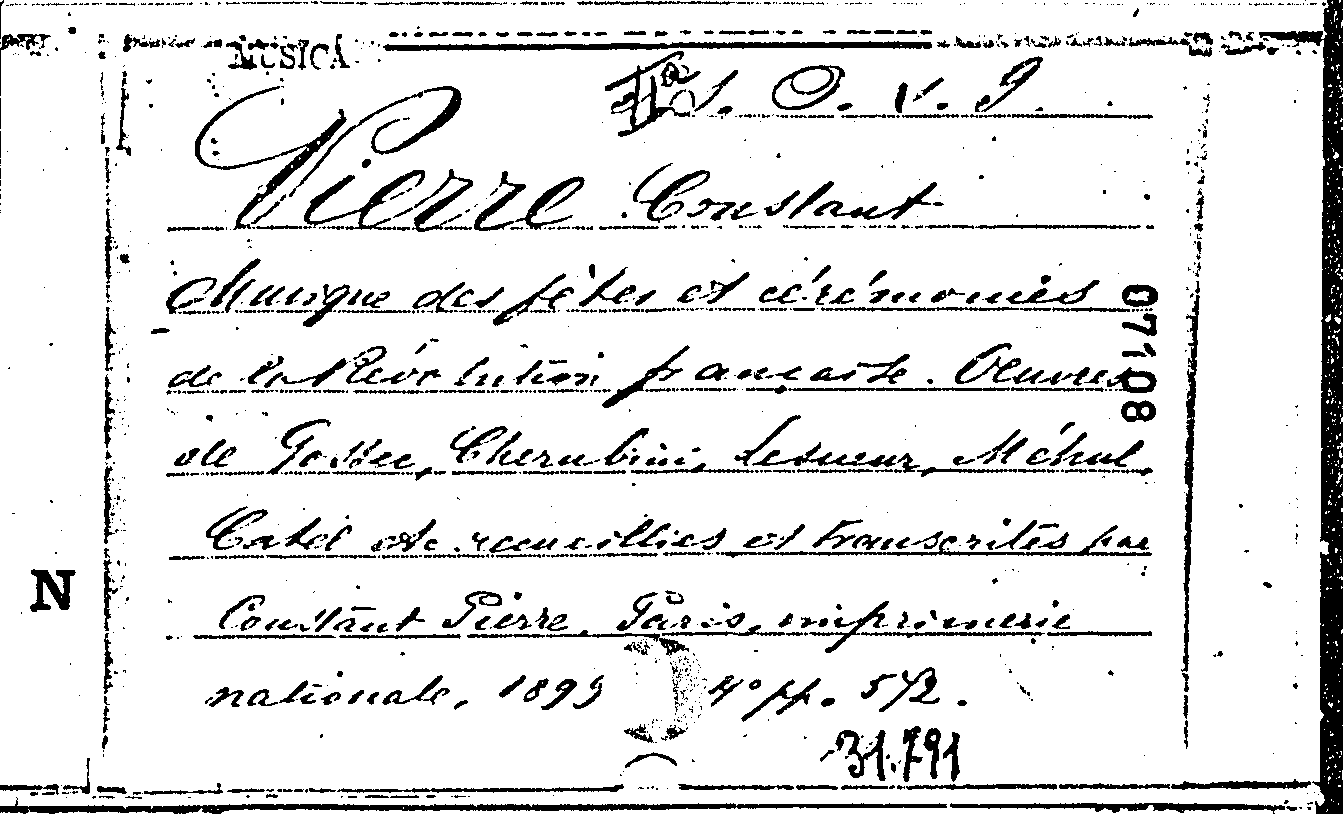 MUSICA
S. O. V. 9.
Pierre Constant
Musique des fêtes et cérémonies
07108
de la Révolution française. Oeuvres
de Gossec, Cherubini, Lesueur, Méhul,
Catel etc. recueillies et transcrites par
N
Constant Pierre. Paris, imprimerie
nationale, 1899 4º pp. 572.
31.791